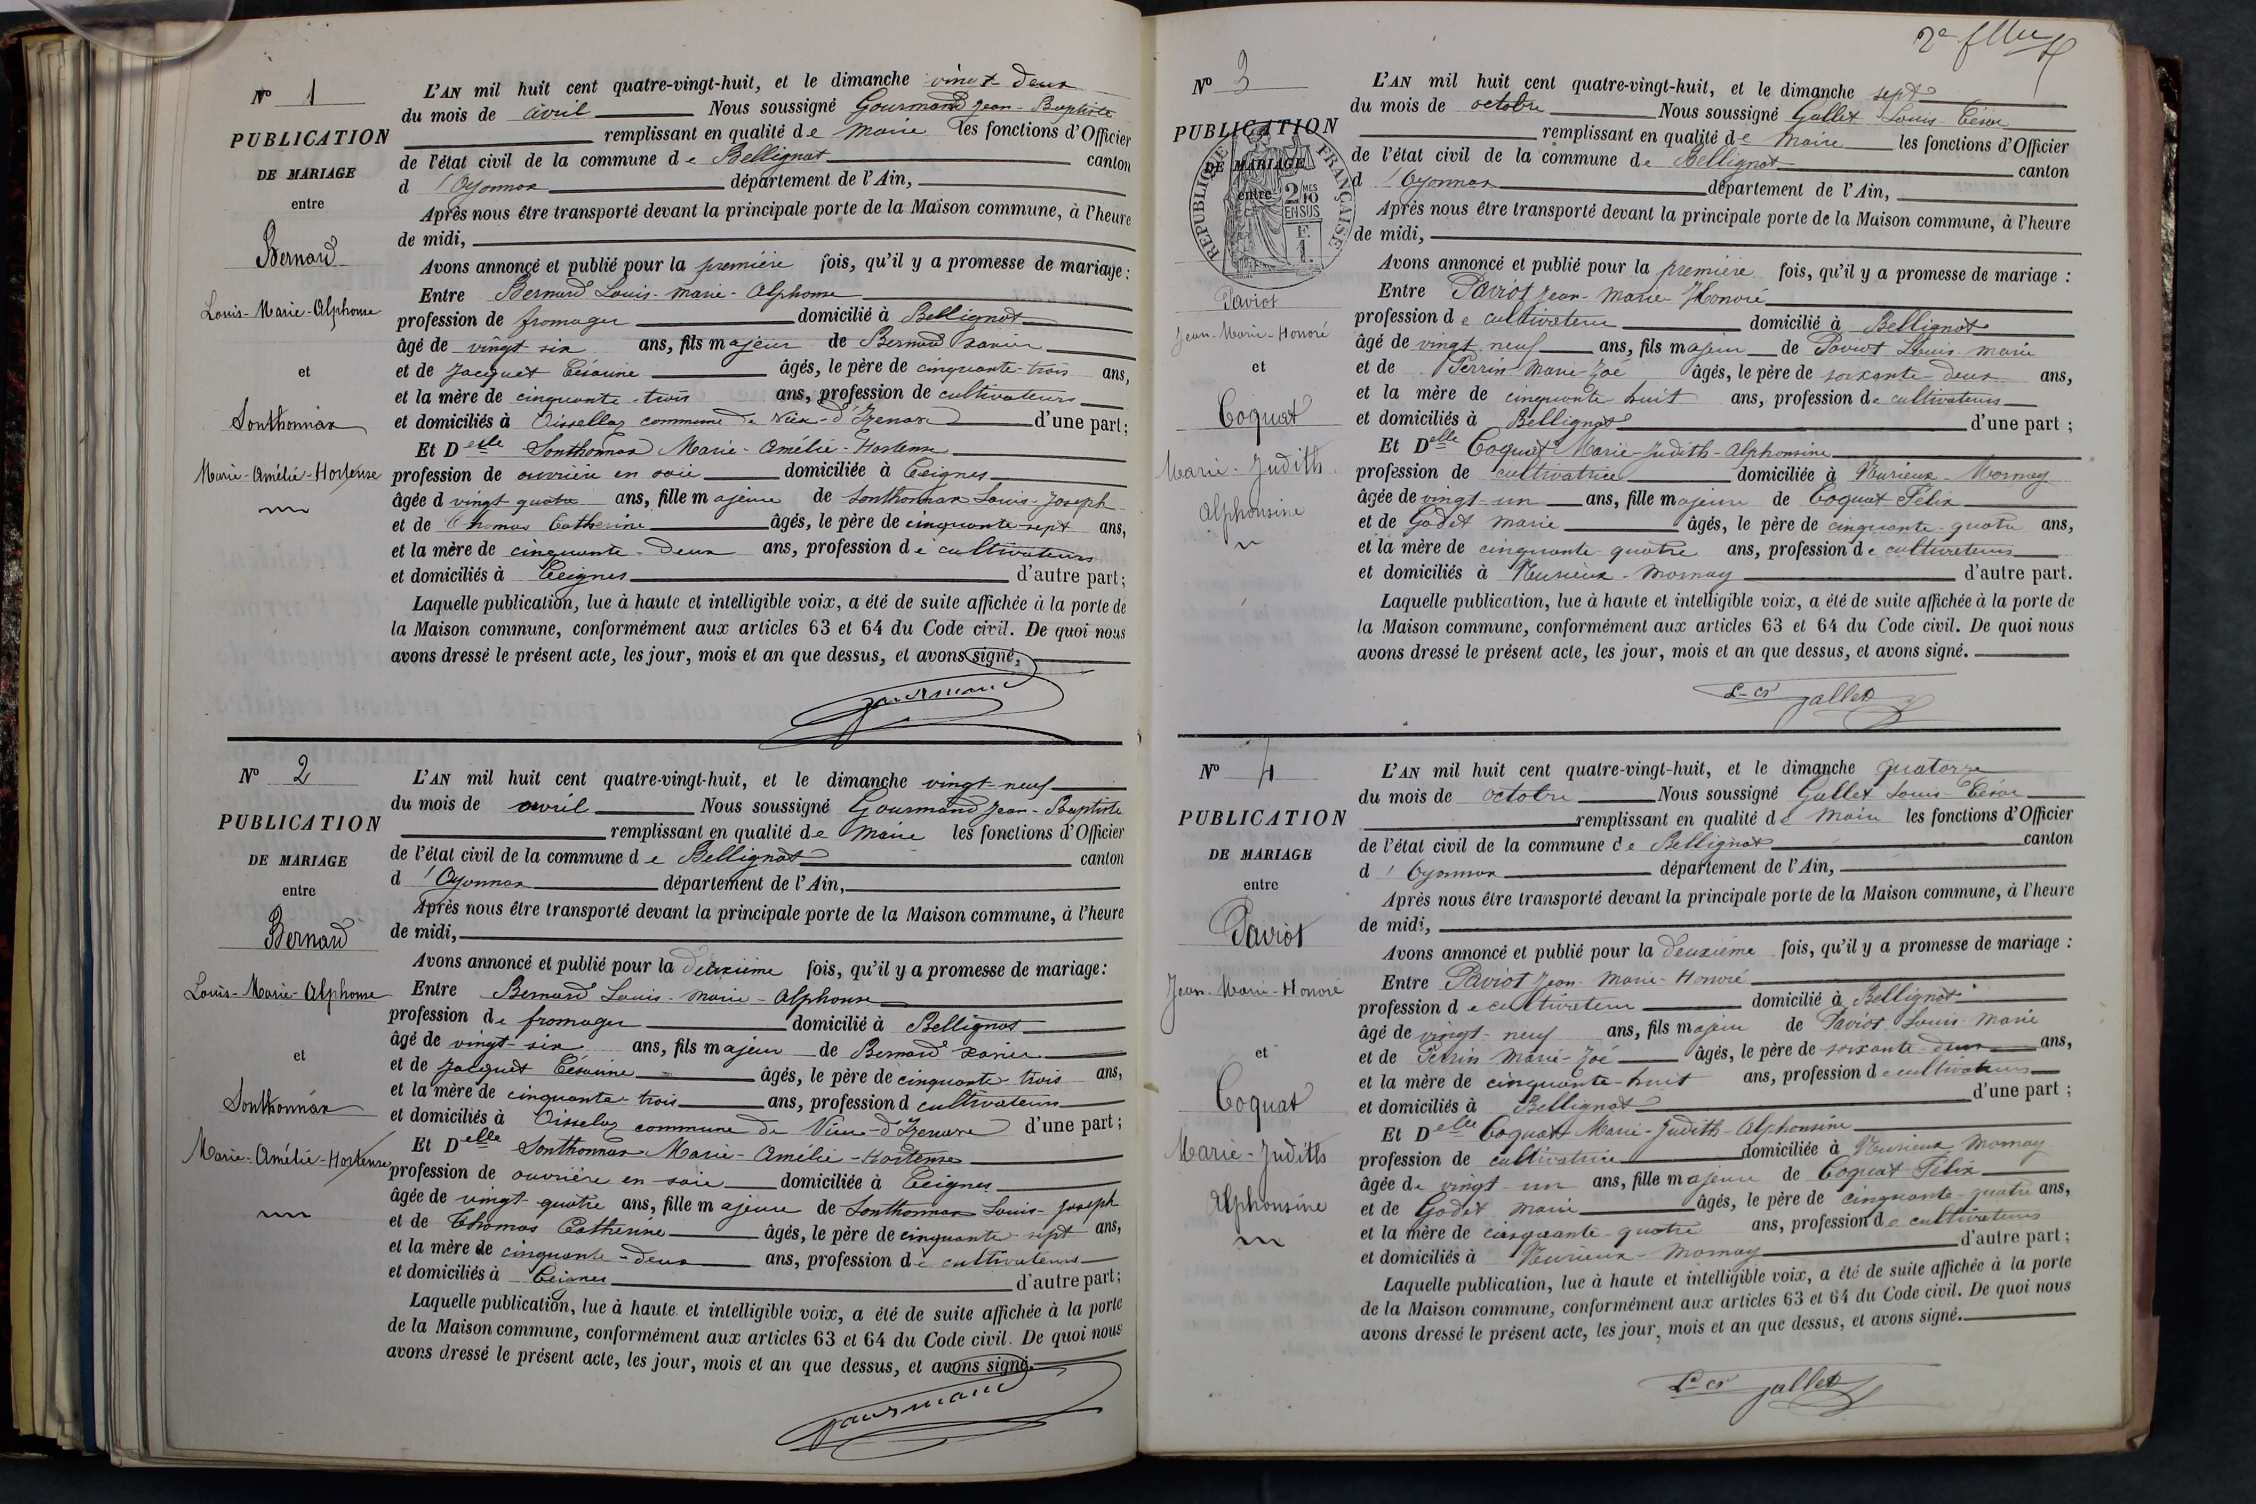 N° 1
PUBLICATION
DE MARIAGE
entre
Bernard
Louis-Marie-Alphonse
et
Sonthonnax
Marie-Amélie-Hortense
L'AN mil huit cent quatre-vingt-huit, et le dimanche vingt deux
du mois de avril Nous soussigné Gourmand Jean-Baptiste
remplissant en qualité de Maire les fonctions d'Officier
de l'état civil de la commune de Bellignat canton
d'Oyonnax département de l'Ain,
Après nous être transporté devant la principale porte de la Maison commune, à l'heure
de midi,
Avons annoncé et publié pour la première fois, qu'il y a promesse de mariage :
Entre Bernard Louis-marie-Alphonse
profession de fromager domicilié à Bellignat
âgé de vingt-six ans, fils majeur de Bernard Xavier
et de Jacquet Césarine âgés, le père de cinquante-trois ans,
et la mère de cinquante-trois ans, profession de cultivateurs
et domiciliés à commune de d'Izenave d'une part ;
Et Delle Sonthonnax Marie-Amélie-Hortense
profession de ouvrière en soie domiciliée à Ceignes
âgée d vingt quatre ans, fille majeure de Sonthonnax Louis-Joseph
et de Thomas Catherine âgés, le père de cinquante-sept ans,
et la mère de cinquante-deux ans, profession de cultivateurs
et domiciliés à Ceignes d'autre part ;
Laquelle publication, lue à haute et intelligible voix, a été de suite affichée à la porte de
la Maison commune, conformément aux articles 63 et 64 du Code civil. De quoi nous
avons dressé le présent acte, les jour, mois et an que dessus, et avons signé.
Gourmand
N° 2
PUBLICATION
DE MARIAGE
entre
Bernard
Louis-Marie-Alphonse
et
Sonthonnax
Marie-Amélie-Hortense
L'AN mil huit cent quatre-vingt-huit, et le dimanche vingt-neuf
du mois de avril Nous soussigné Gourmand Jean-Baptiste
remplissant en qualité de Maire les fonctions d'Officier
de l'état civil de la commune de Bellignat canton
d'Oyonnax département de l'Ain,
Après nous être transporté devant la principale porte de la Maison commune, à l'heure
de midi,
Avons annoncé et publié pour la deuxième fois, qu'il y a promesse de mariage :
Entre Bernard Louis-marie-Alphonse
profession de fromager domicilié à Bellignat
âgé de vingt-six ans, fils majeur de Bernard Xavier
et de Jacquet Césarine âgés, le père de cinquante-trois ans,
et la mère de cinquante-trois ans, profession d cultivateurs
et domiciliés à commune de d'Izenave d'une part ;
Et Delle Sonthonnax Marie-Amélie-Hortense
profession de ouvrière en soie domiciliée à Ceignes
âgée de vingt-quatre ans, fille majeure de Sonthonnax Louis-Joseph
et de Thomas Catherine âgés, le père de cinquante-sept ans,
et la mère de cinquante-deux ans, profession de cultivateurs
et domiciliés à Ceignes d'autre part ;
Laquelle publication, lue à haute et intelligible voix, a été de suite affichée à la porte
de la Maison commune, conformément aux articles 63 et 64 du Code civil. De quoi nous
avons dressé le présent acte, les jour, mois et an que dessus, et avons signé.
Gourmand
2e
N° 3
PUBLICATION
DE MARIAGE
entre
RÉPUBLIQUE FRANÇAISE
2 MES 10
EN SUS
F.
1.
Paviot
Jean-Marie-Honoré
et
Coquat
Marie-Judith
Alphonsine
L'AN mil huit cent quatre-vingt-huit, et le dimanche sept
du mois de octobre Nous soussigné Gallet Louis César
remplissant en qualité de Maire les fonctions d'Officier
de l'état civil de la commune de Bellignat canton
d'Oyonnax département de l'Ain,
Après nous être transporté devant la principale porte de la Maison commune, à l'heure
de midi,
Avons annoncé et publié pour la première fois, qu'il y a promesse de mariage :
Entre Paviot Jean-Marie-Honoré
profession de cultivateur domicilié à Bellignat
âgé de vingt neuf ans, fils majeur de Paviot Louis-marie
et de Perrin Marie-Zoé âgés, le père de soixante-deux ans,
et la mère de cinquante huit ans, profession de cultivateurs
et domiciliés à Bellignat d'une part ;
Et Delle Coquat Marie-Judith-Alphonsine
profession de cultivatrice domiciliée à Veurieux-Mornay
âgée de vingt-un ans, fille majeure de Coquat Félix
et de Godet Marie âgés, le père de cinquante-quatre ans,
et la mère de cinquante-quatre ans, profession de cultivateurs
et domiciliés à Veurieux-Mornay d'autre part.
Laquelle publication, lue à haute et intelligible voix, a été de suite affichée à la porte de
la Maison commune, conformément aux articles 63 et 64 du Code civil. De quoi nous
avons dressé le présent acte, les jour, mois et an que dessus, et avons signé.
L-cr Gallet
N° 4
PUBLICATION
DE MARIAGE
entre
Paviot
Jean-Marie-Honoré
et
Coquat
Marie-Judith
Alphonsine
L'AN mil huit cent quatre-vingt-huit, et le dimanche quatorze
du mois de octobre Nous soussigné Gallet Louis César
remplissant en qualité de Maire les fonctions d'Officier
de l'état civil de la commune de Bellignat canton
d'Oyonnax département de l'Ain,
Après nous être transporté devant la principale porte de la Maison commune, à l'heure
de midi,
Avons annoncé et publié pour la deuxième fois, qu'il y a promesse de mariage :
Entre Paviot Jean-Marie-Honoré
profession de cultivateur domicilié à Bellignat
âgé de vingt-neuf ans, fils majeur de Paviot Louis-Marie
et de Perrin Marie-Zoé âgés, le père de soixante-deux ans,
et la mère de cinquante-huit ans, profession de cultivateurs
et domiciliés à Bellignat d'une part ;
Et Delle Coquat Marie-Judith-Alphonsine
profession de cultivatrice domiciliée à Veurieux Mornay
âgée de vingt-un ans, fille majeure de Coquat Félix
et de Godet Marie âgés, le père de cinquante-quatre ans,
et la mère de cinquante-quatre ans, profession de cultivateurs
et domiciliés à Veurieux-Mornay d'autre part ;
Laquelle publication, lue à haute et intelligible voix, a été de suite affichée à la porte
de la Maison commune, conformément aux articles 63 et 64 du Code civil. De quoi nous
avons dressé le présent acte, les jour, mois et an que dessus, et avons signé.
L-cr Gallet